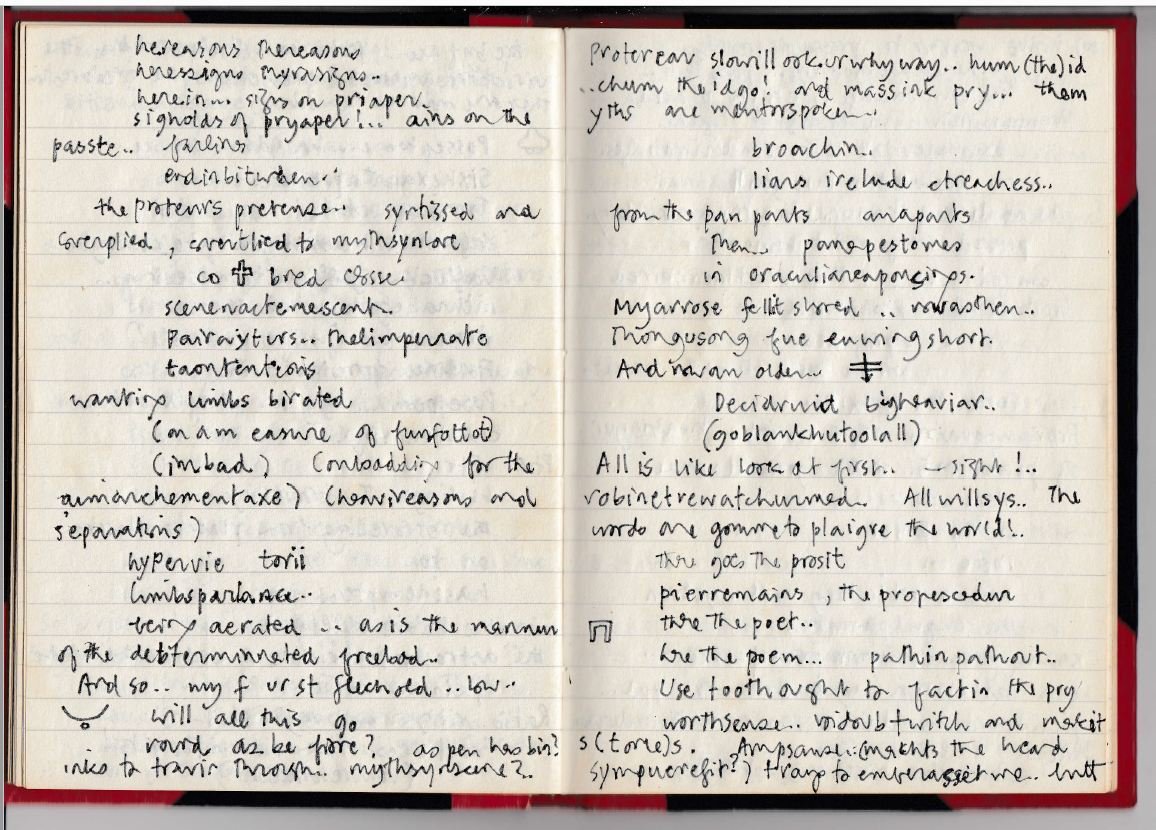 hereasons thereasons
heressigns myrasigns..
herein... signs on priaper.
signolds of pryaper!... ains on the
passte.. farlins
endinbitwhen..
the proteurs pretense.. syrtissed and
coverplied, covertlied to mythsynlore
co bred closse.
scenenactemescent..
Pairayturs.. thelimpernate
taontentions
wantings limbs birated
(on am easure of funfottot)
(imbad) (onloadding for the
aimarchementaxe) (heavireasons and
separations)
hypervie torii
limbsparlance..
being aerated ... as is the mannum
of the debterminnated freebod..
And so.. my f ur st flechold .. low..
will all this go
round as be fore? as pen has bin?
inks to travir through.. mythsynscene?..
Proterean slowill ook.urwhyway.. hum (the) id
..chum the id go! and mass ink pry... them
yths are mentorspoken..
broachin..
liars irelude etreachess..
from the pan parts anaparts
then... panapestomes
in oraculiareaponsings.
Myarrose fellit shred .. rowasthen..
Thongusong fue enwingshort.
And rowan older...
Decidruid bigheaviar..
(goblankhutoolall)
All is like look at first.. sight!..
robinetrewatchurmed. All willsys.. The
words are gomme to plaigre the world!..
there goes the prosit
pierremains, the propescedun
there the poet..
here the poem... pathin pathout..
Use toothought to factin the pry
worthsense.. voidoubtwitch and makeit
s(tone)s. Ampsause..(makhts the heard
sympuerefit?) tramp to emberassetme.. butt